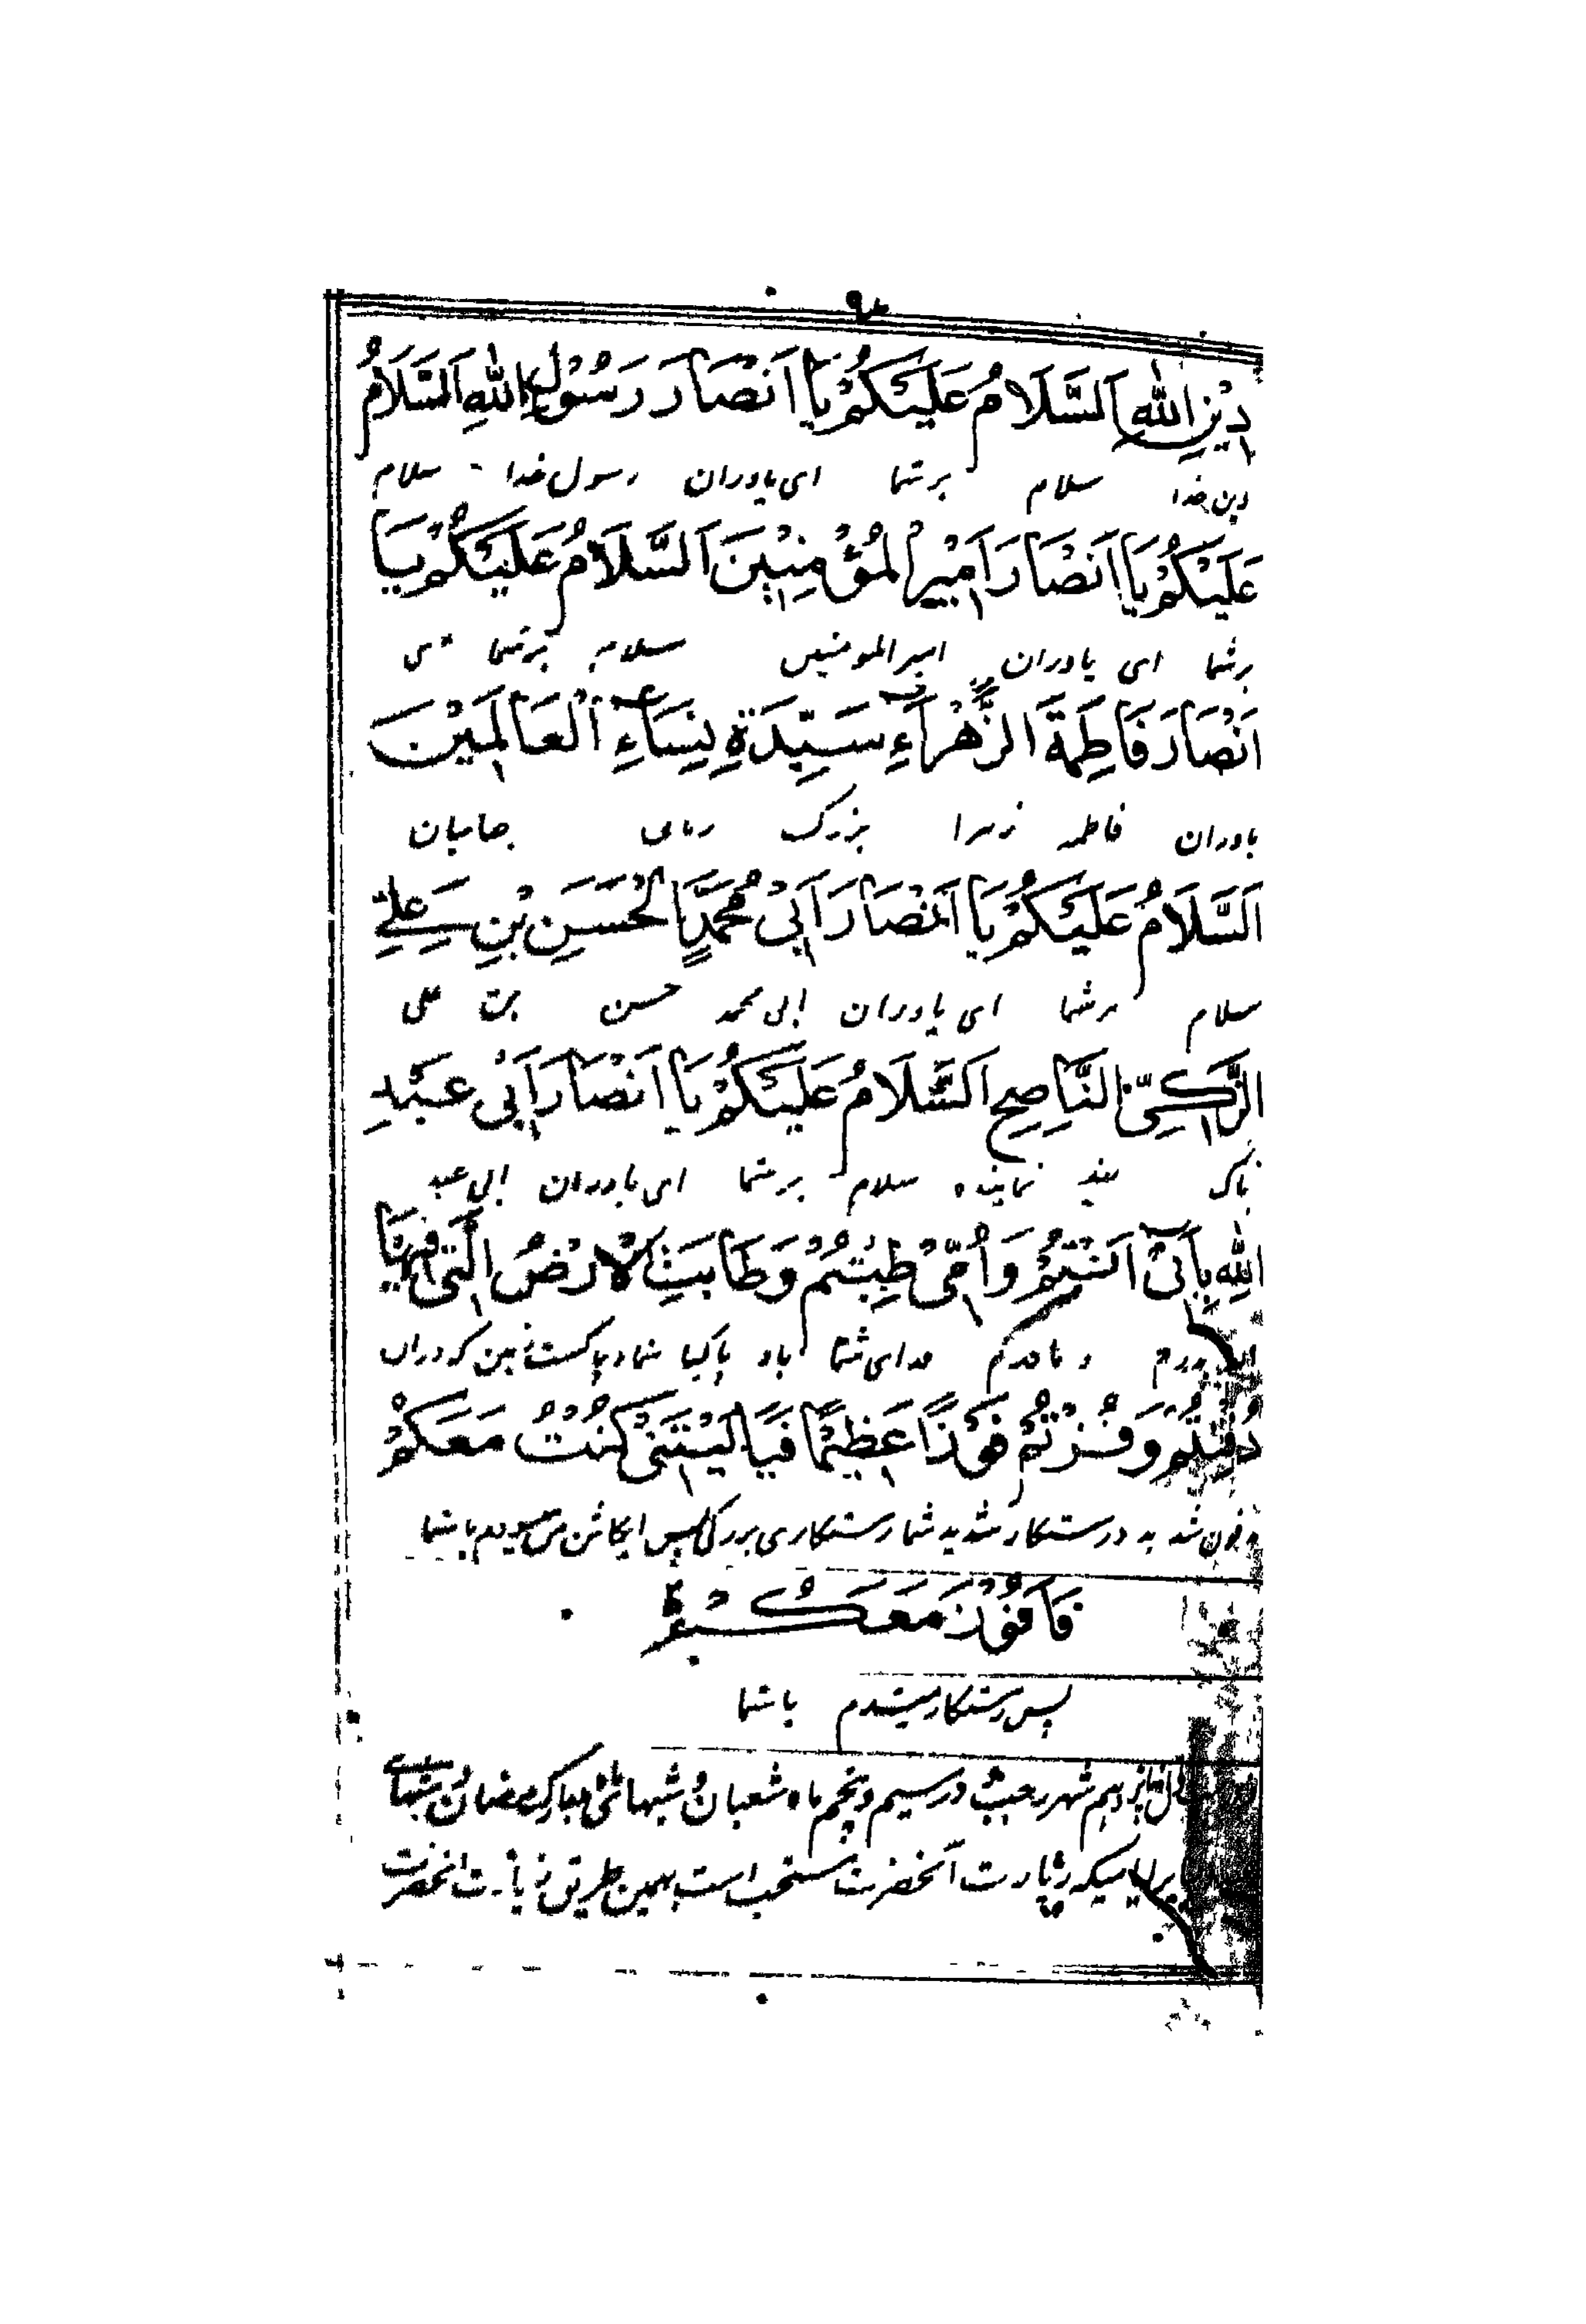 دِيْنِ اللهِ اَلسَّلَامُ عَلَيْكُمْ يَا اَنْصَارَ رَسُوْلِ اللهِ اَلسَّلَامُ
دین خدا سلام بر شما ای یاوران رسول خدا سلام
عَلَيْكُمْ يَا اَنْصَارَ اَمِيْرِ الْمُؤْمِنِيْنَ اَلسَّلَامُ عَلَيْكُمْ يَا
بر شما ای یاوران امیر المومنین سلام بر شما ای
اَنْصَارَ فَاطِمَةَ الزَّهْرَآءِ سَيِّدَةِ نِسَآءِ الْعَالَمِيْنَ
یاوران فاطمه زهرا بزرک زنان جهانیان
اَلسَّلَامُ عَلَيْكُمْ يَا اَنْصَارَ اَبِيْ مُحَمَّدٍ الْحَسَنِ بْنِ عَلِيٍّ
سلام بر شما ای یاوران ابی محمد حسن بن علی
الزَّكِيِّ النَّاصِحِ اَلسَّلَامُ عَلَيْكُمْ يَا اَنْصَارَ اَبِيْ عَبْدِ
پاک پند نماینده سلام بر شما ای یاوران ابی عبد
اللهِ بِاَبِيْ اَنْتُمْ وَاُمِّيْ طِبْتُمْ وَطَابَتِ الْاَرْضُ الَّتِيْ فِيْهَا
الله پدرم و مادرم فدای شما باد پاکید شما و پاکست زمین که دران
دُفِنْتُمْ وَفُزْتُمْ فَوْزًا عَظِيْمًا فَيَا لَيْتَنِيْ كُنْتُ مَعَكُمْ
مدفون شدید و رستکار شدید شما رستکاری بزرگی پس ایکاش من میبودم با شما
فَاَفُوْزَ مَعَكُمْ
پس رستکار میشدم با شما
پانزدهم شهر رجب و در سیم و پنجم ماه شعبان و شبهائی مبارک رمضان و شبهای
ایامیکه زیارت آنحضرت مستحب است بهمین طریق زیارت انحضرت